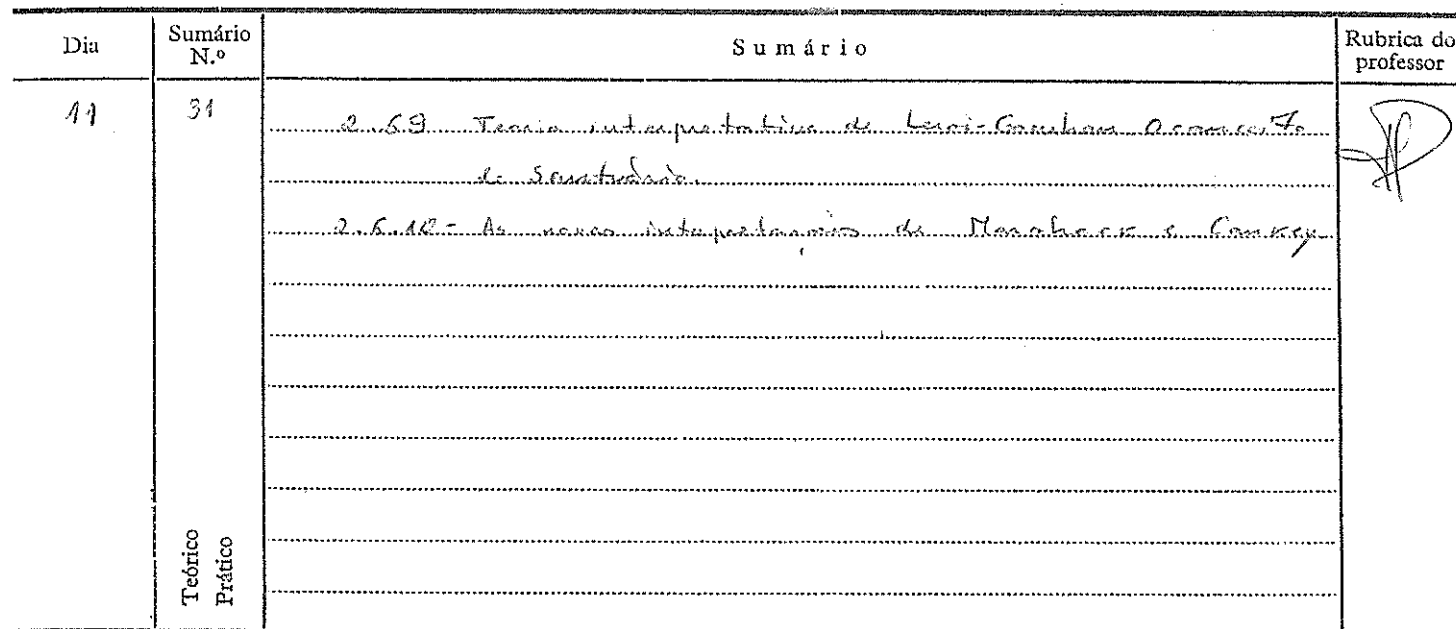 Dia
Sumário N.º
Sumário
Rubrica do professor
11
31
2.6.9 Teoria interpretativa de Leroi-Gourhan O conceito
de Santuário.
2.6.10 - As novas interpretações de Marshack e Conkey
Teórico
Prático